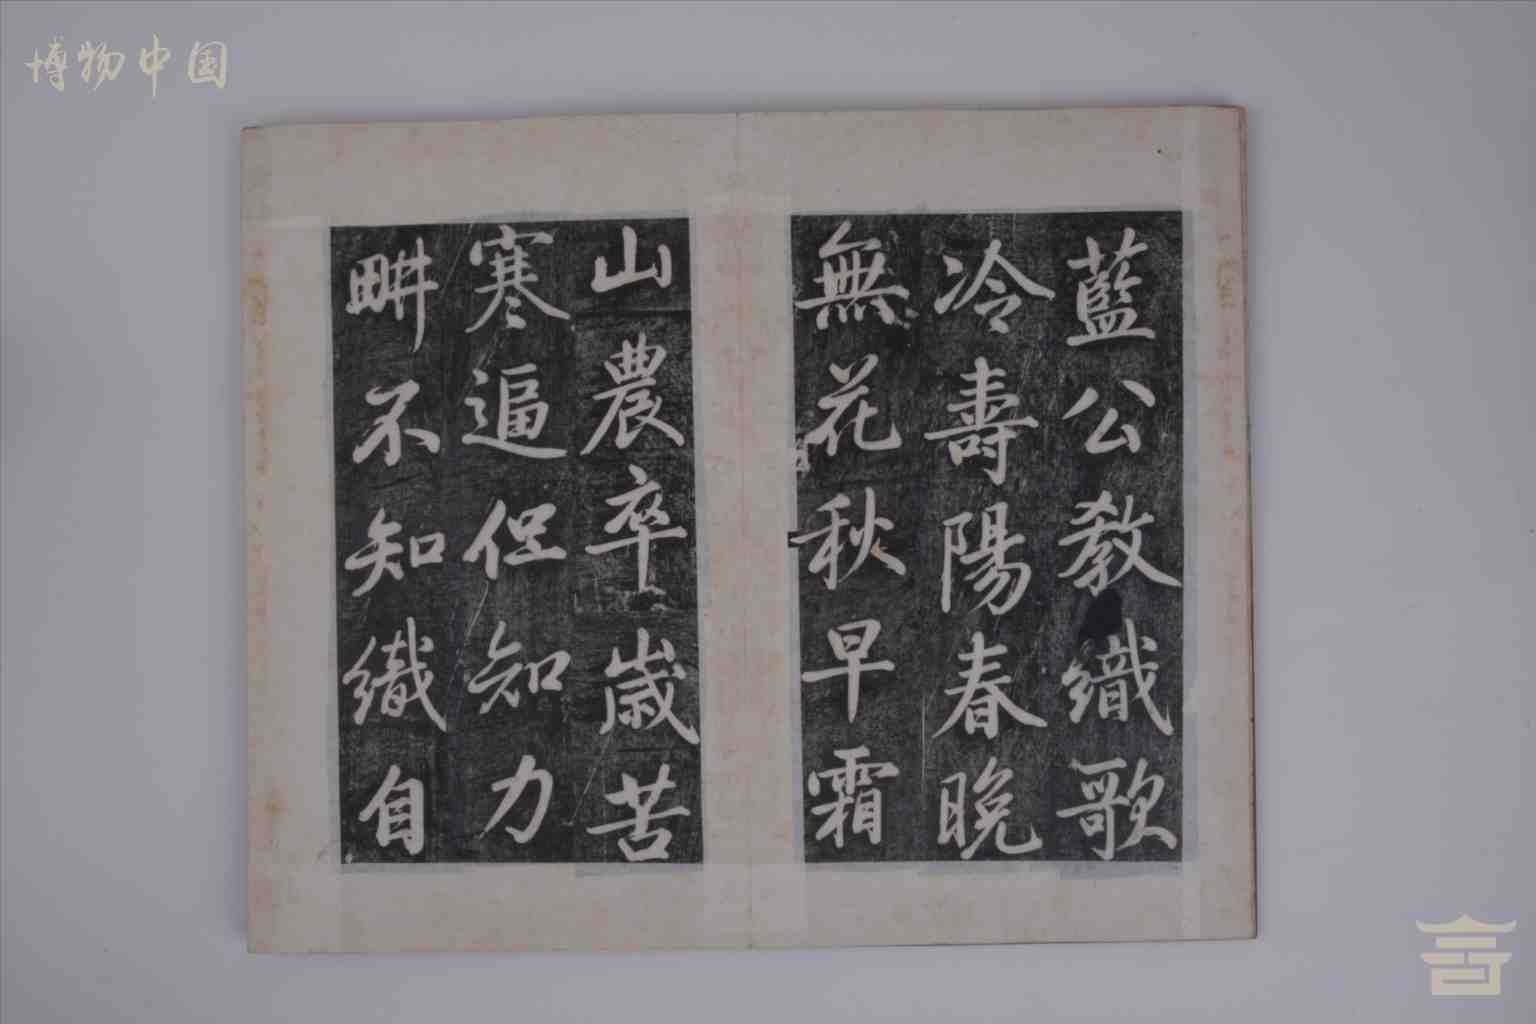 博物中国
藍公教織歌
冷壽陽春晚
無花秋早霜
山農卒歲苦
寒逼但知力
畊不知織自